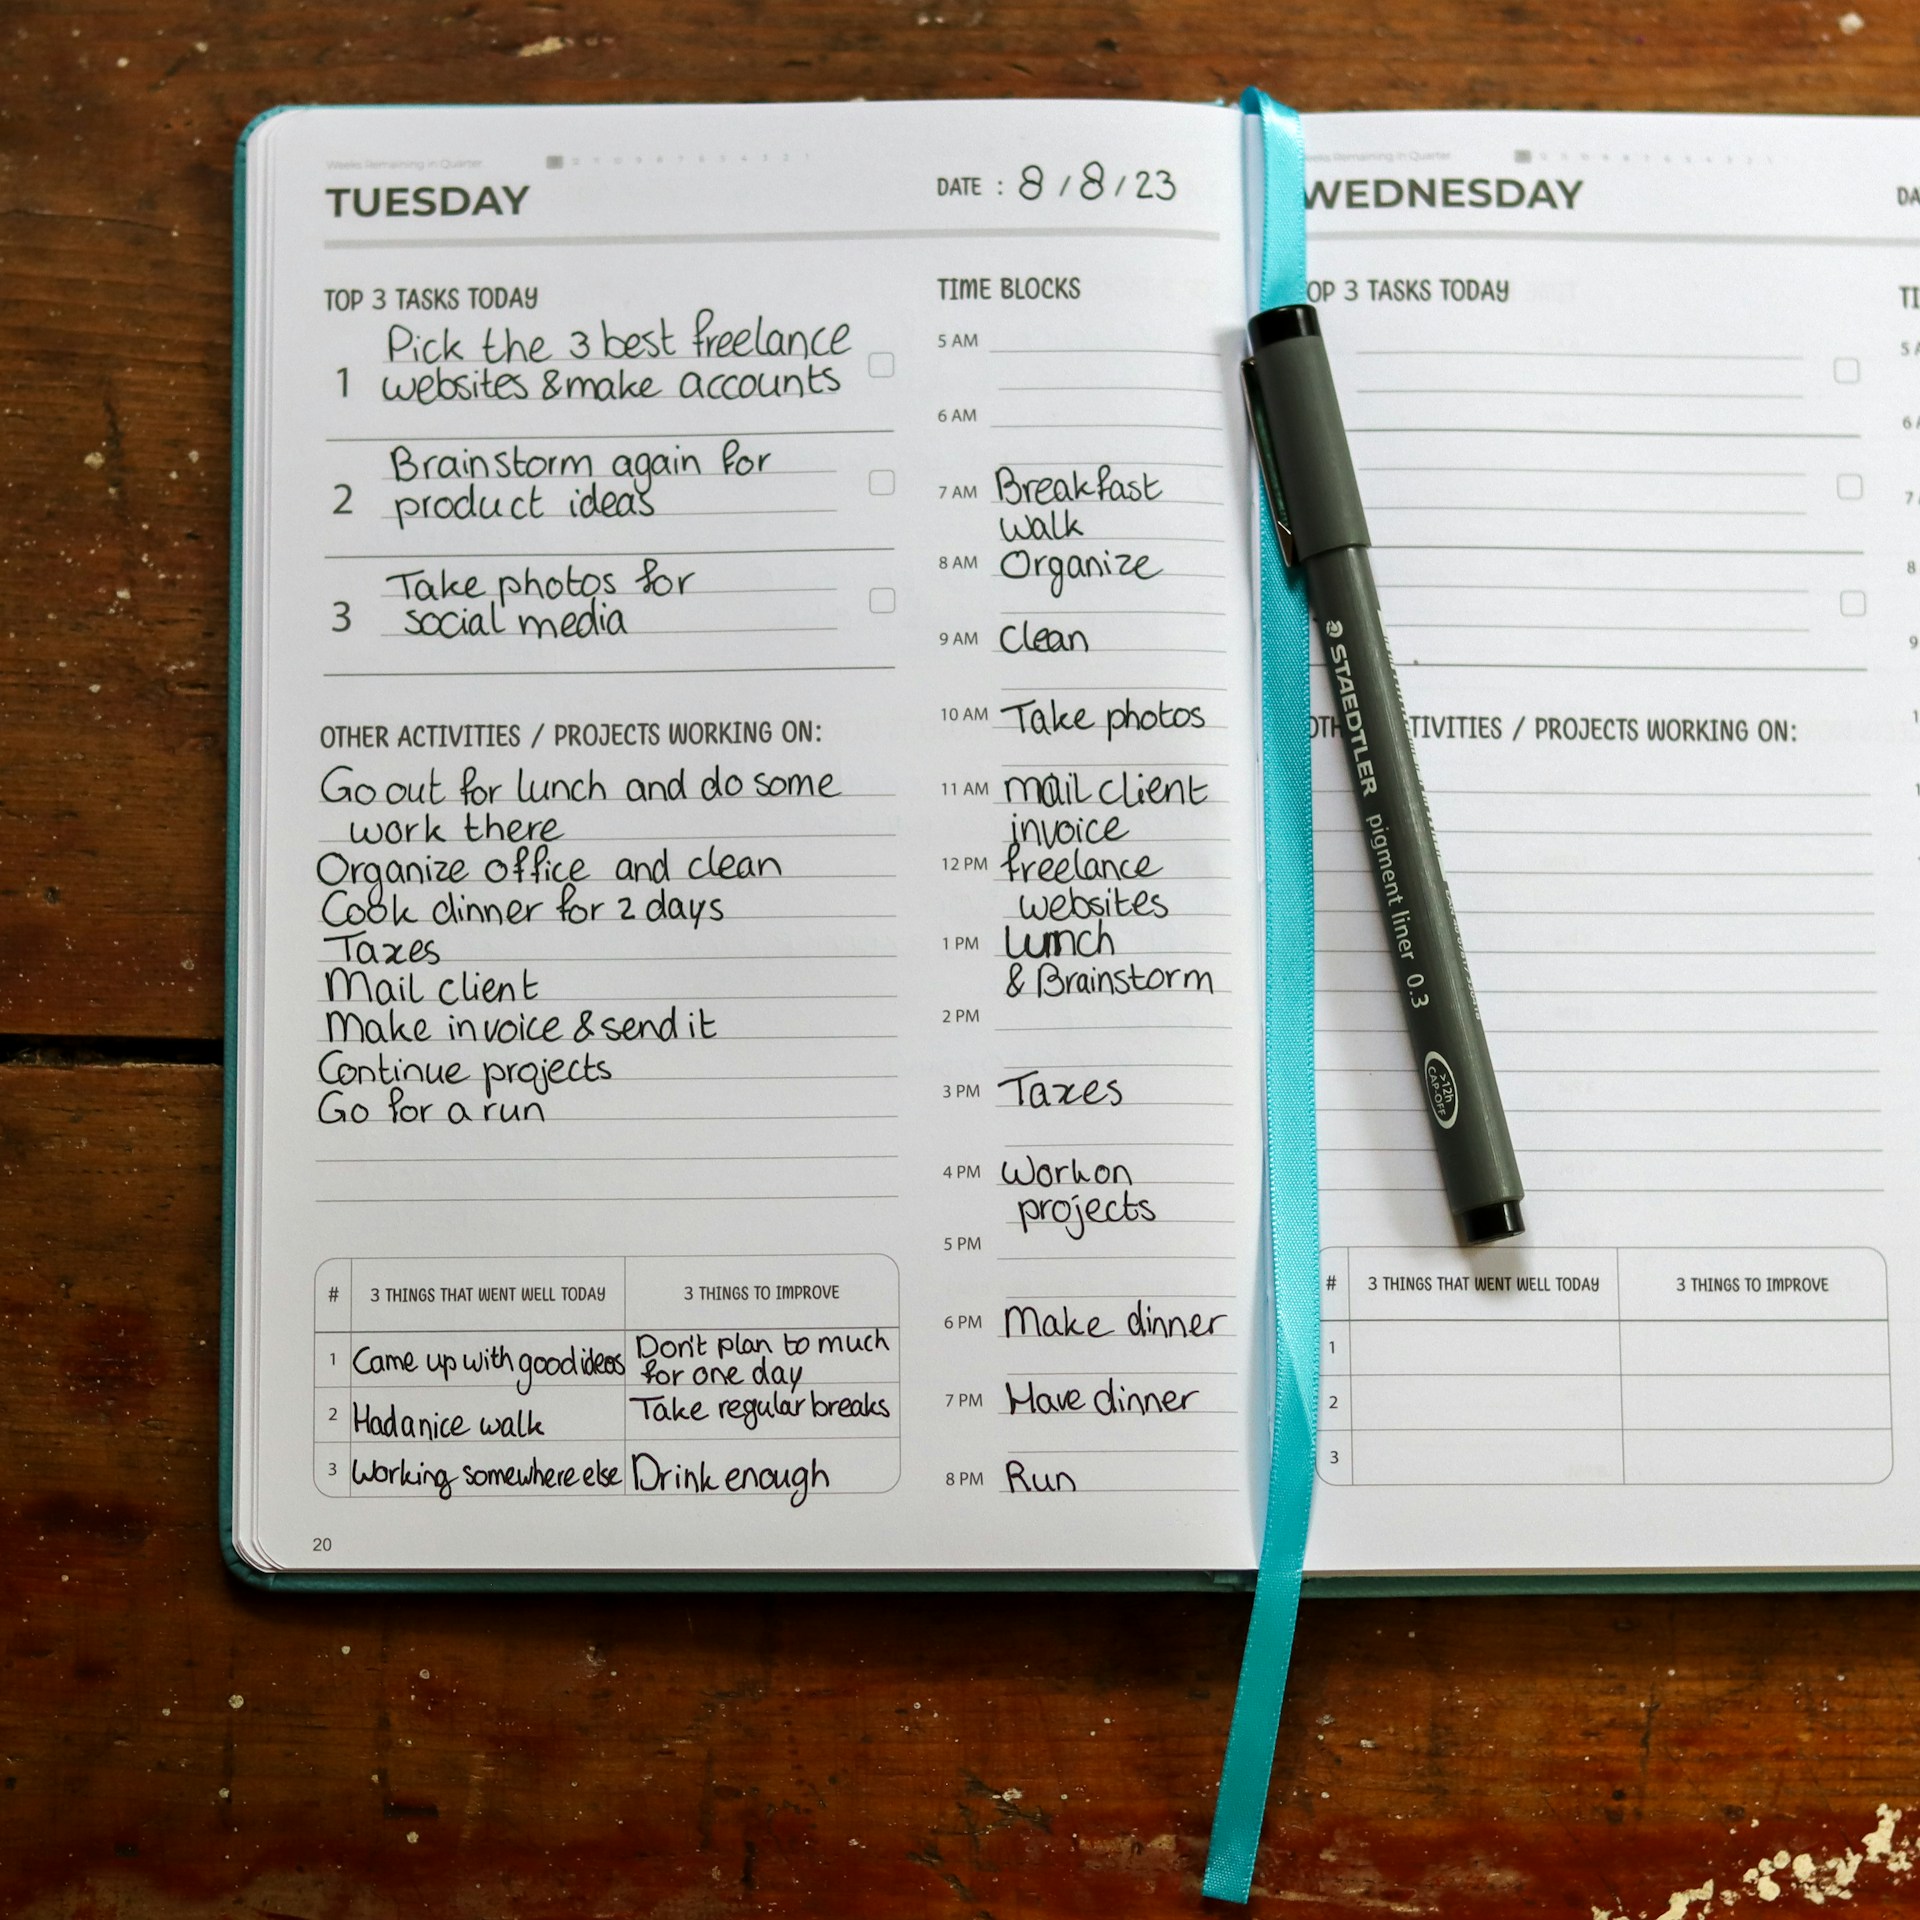 Weeks Remaining in Quarter
TUESDAY
DATE : 8 / 8 / 23
TOP 3 TASKS TODAY
1 Pick the 3 best freelance
websites & make accounts
2 Brainstorm again for
product ideas
3 Take photos for
social media
OTHER ACTIVITIES / PROJECTS WORKING ON:
Go out for lunch and do some
work there
Organize office and clean
Cook dinner for 2 days
Taxes
Mail client
Make invoice & send it
Continue projects
Go for a run
# 3 THINGS THAT WENT WELL TODAY 3 THINGS TO IMPROVE
1 Came up with good ideas Don't plan to much
for one day
2 Had a nice walk Take regular breaks
3 Working somewhere else Drink enough
20
TIME BLOCKS
5 AM
6 AM
7 AM Breakfast
walk
8 AM Organize
9 AM Clean
10 AM Take photos
11 AM mail client
invoice
12 PM freelance
websites
1 PM Lunch
& Brainstorm
2 PM
3 PM Taxes
4 PM Work on
projects
5 PM
6 PM Make dinner
7 PM Have dinner
8 PM Run
Remaining in Quarter
WEDNESDAY
DA
OP 3 TASKS TODAY
TI
5 A
6
7
8
9
OTH TIVITIES / PROJECTS WORKING ON:
# 3 THINGS THAT WENT WELL TODAY 3 THINGS TO IMPROVE
1
2
3
STAEDTLER pigment liner 0.3
>12h
CAP-OFF